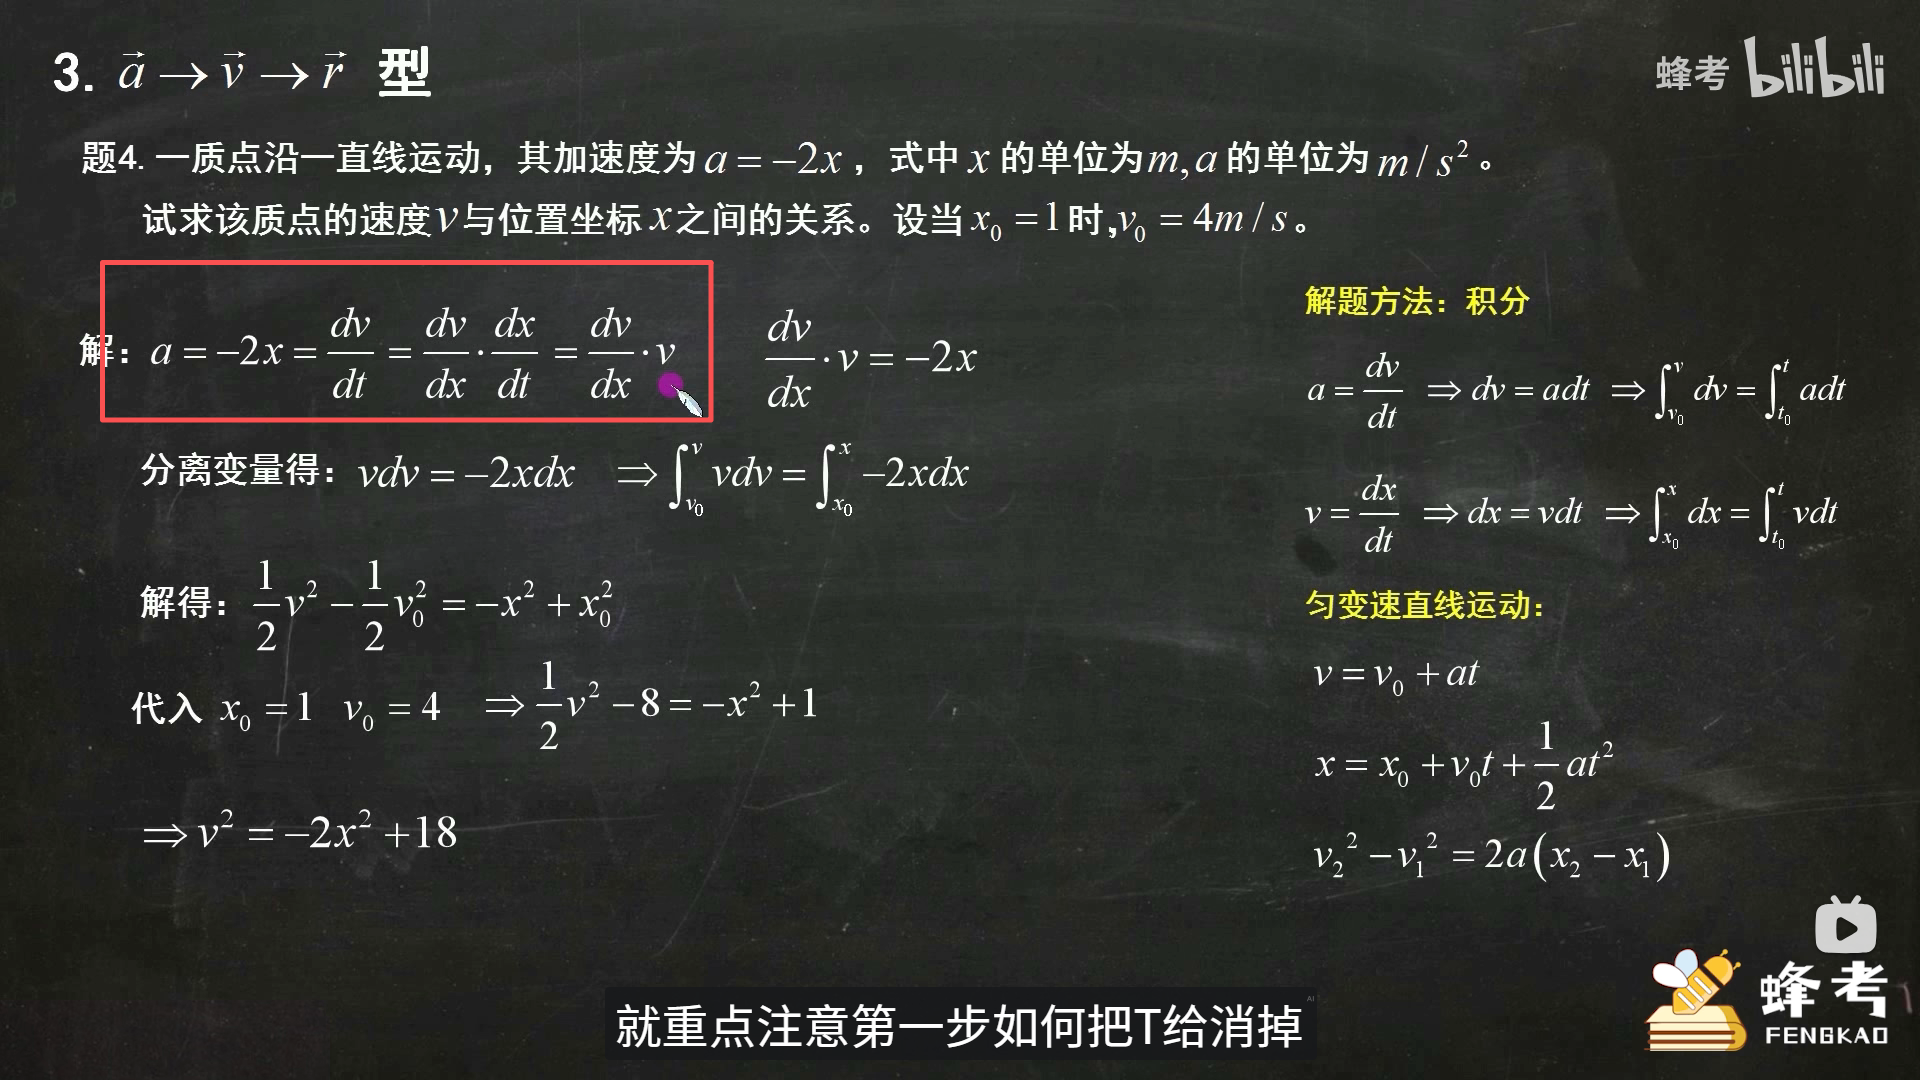 3. \vec{a} → \vec{v} → \vec{r} 型
蜂考 bilibili
题4. 一质点沿一直线运动，其加速度为 a = −2x ，式中 x 的单位为 m, a 的单位为 m / s² 。
试求该质点的速度 v 与位置坐标 x 之间的关系。设当 x₀ = 1 时, v₀ = 4m / s 。
解：a = −2x = dv/dt = dv/dx · dx/dt = dv/dx · v
dv/dx · v = −2x
分离变量得：vdv = −2xdx ⇒ ∫_{v₀}^{v} vdv = ∫_{x₀}^{x} −2xdx
解得：1/2 v² − 1/2 v₀² = −x² + x₀²
代入 x₀ = 1 v₀ = 4 ⇒ 1/2 v² − 8 = −x² + 1
⇒ v² = −2x² + 18
解题方法：积分
a = dv/dt ⇒ dv = adt ⇒ ∫_{v₀}^{v} dv = ∫_{t₀}^{t} adt
v = dx/dt ⇒ dx = vdt ⇒ ∫_{x₀}^{x} dx = ∫_{t₀}^{t} vdt
匀变速直线运动：
v = v₀ + at
x = x₀ + v₀t + 1/2 at²
v₂² − v₁² = 2a(x₂ − x₁)
就重点注意第一步如何把T给消掉
AI
蜂考
FENGKAO